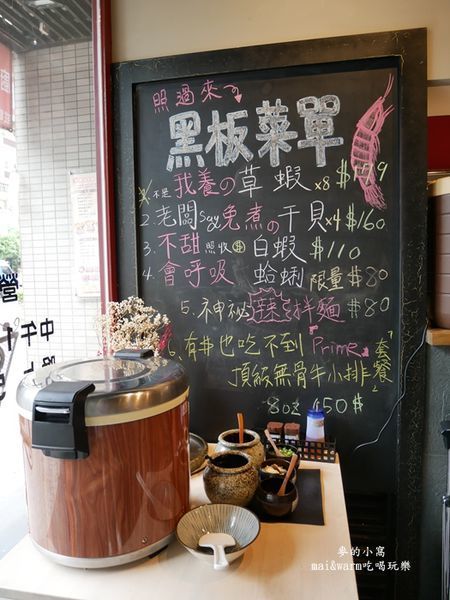 照過來
黑板菜單
不是我養の草蝦x8 $179
2. 老闆say免煮の干貝x4 $160
3. 不甜照收$白蝦 $110
4 會呼吸 蛤蜊 限量$80
5. 神祕辣拌麵 $80
6. 有丼也吃不到「Prime」套餐
頂級無骨牛小排
8oz 450$
營
中午
麥的小窩
mai&warm吃喝玩樂